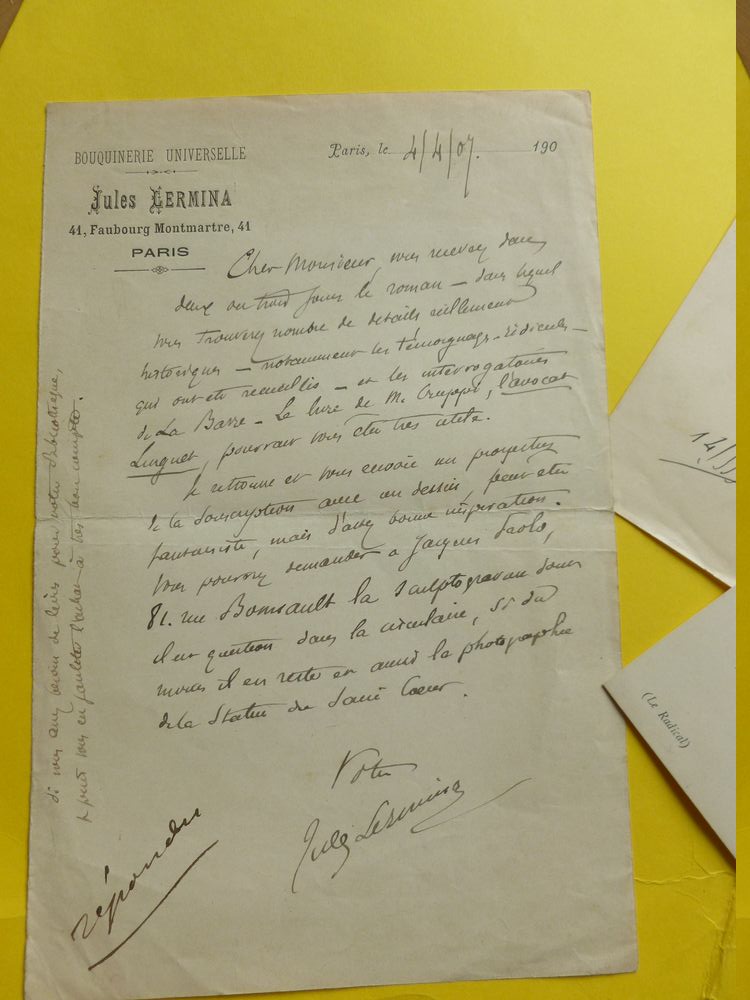 BOUQUINERIE UNIVERSELLE
Jules LERMINA
41, Faubourg Montmartre, 41
PARIS
Paris, le 4/4/07. 190
Cher Monsieur, vous recevrez dans
deux ou trois jours le roman – dans lequel
vous trouverez nombre de détails réellement
historiques – notamment les témoignages – ridicules –
qui ont été recueillis – et les interrogatoires
de La Barre – Le livre de M. Cruppi, l'avocat
Linguet, pourrait vous être très utile.
Je retrouve et vous envoie un prospectus
de la souscription avec un dessin peut-être
fantaisiste, mais d'assez bonne inspiration.
Vous pourriez demander à Jacques Paolo,
81. rue Boursault la sculptogravure dont
il est question dans la circulaire, si du
moins il en reste et aussi la photographie
de la statue du Sacré Coeur.
Votre
Jules Lermina
répondu
si vous avez besoin de livres pour votre Bibliothèque,
je puis vous en faciliter l'achat à très bon compte.
14/
(Le Radical)